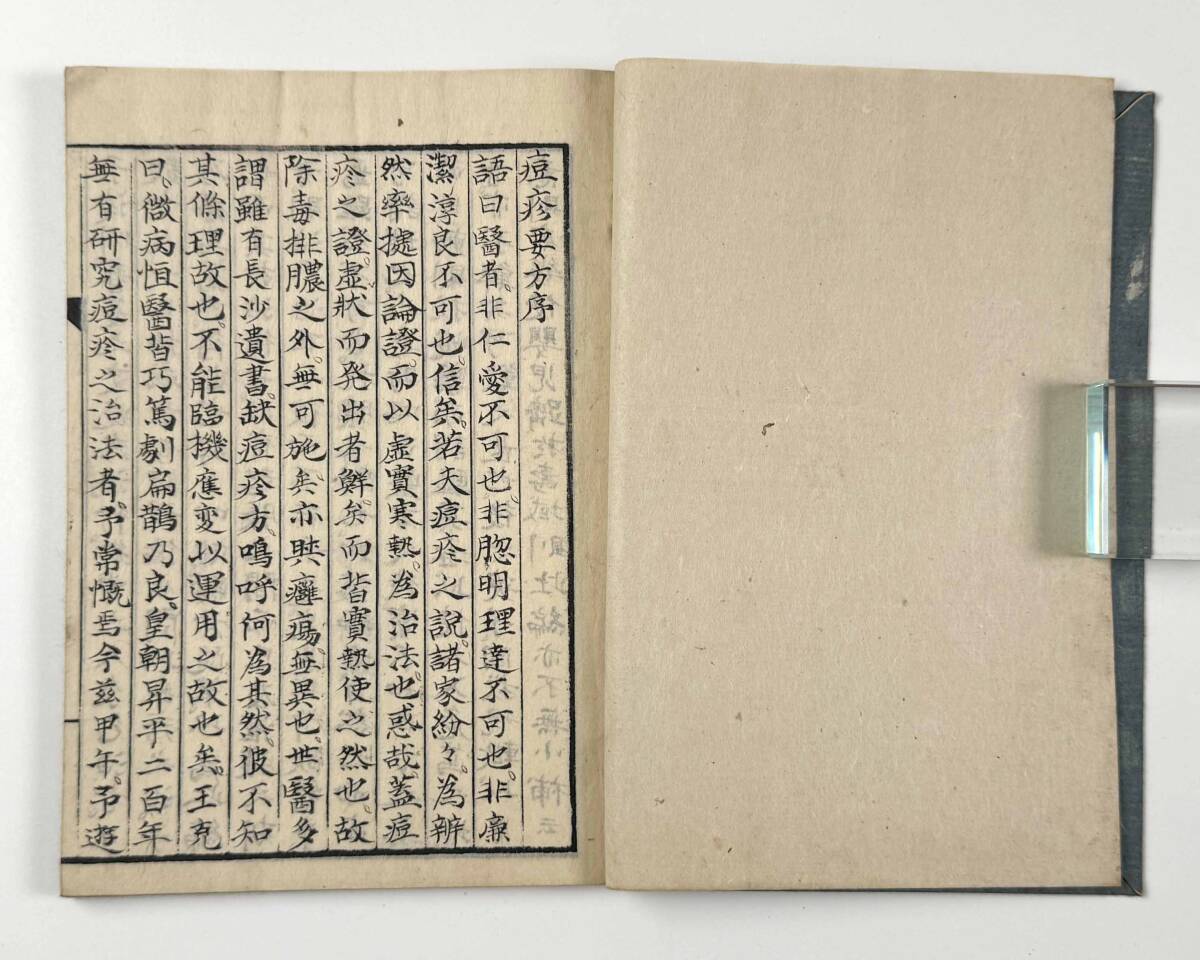 痘疹要方序
語曰醫者。非仁愛不可也。非聰明理達不可也。非廉
潔淳良不可也。信矣。若夫痘疹之說。諸家紛々。為辨
然率據因論證。而以虛實寒熱。為治法也。惑哉。蓋痘
疹之證。虛狀而発出者鮮矣。而皆實熱使之然也。故
除毒排膿之外。無可施矣。亦與癰瘍。無異也。世醫多
謂雖有長沙遺書。缺痘疹方。嗚呼何為其然。彼不知
其條理故也。不能臨機應変以運用之故也矣。王充
曰。微病恒醫皆巧篤劇扁鵲乃良。皇朝昇平二百年
無有研究痘疹之治法者。予常慨焉今茲甲午。予遊